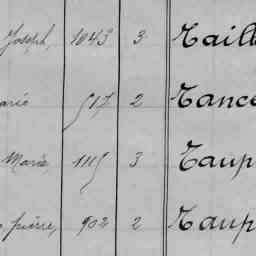 Joseph, 1043 3 Taill
arie 517 2 Tance
Marie 1115 3 Taup
Pierre, 902 2 Taup